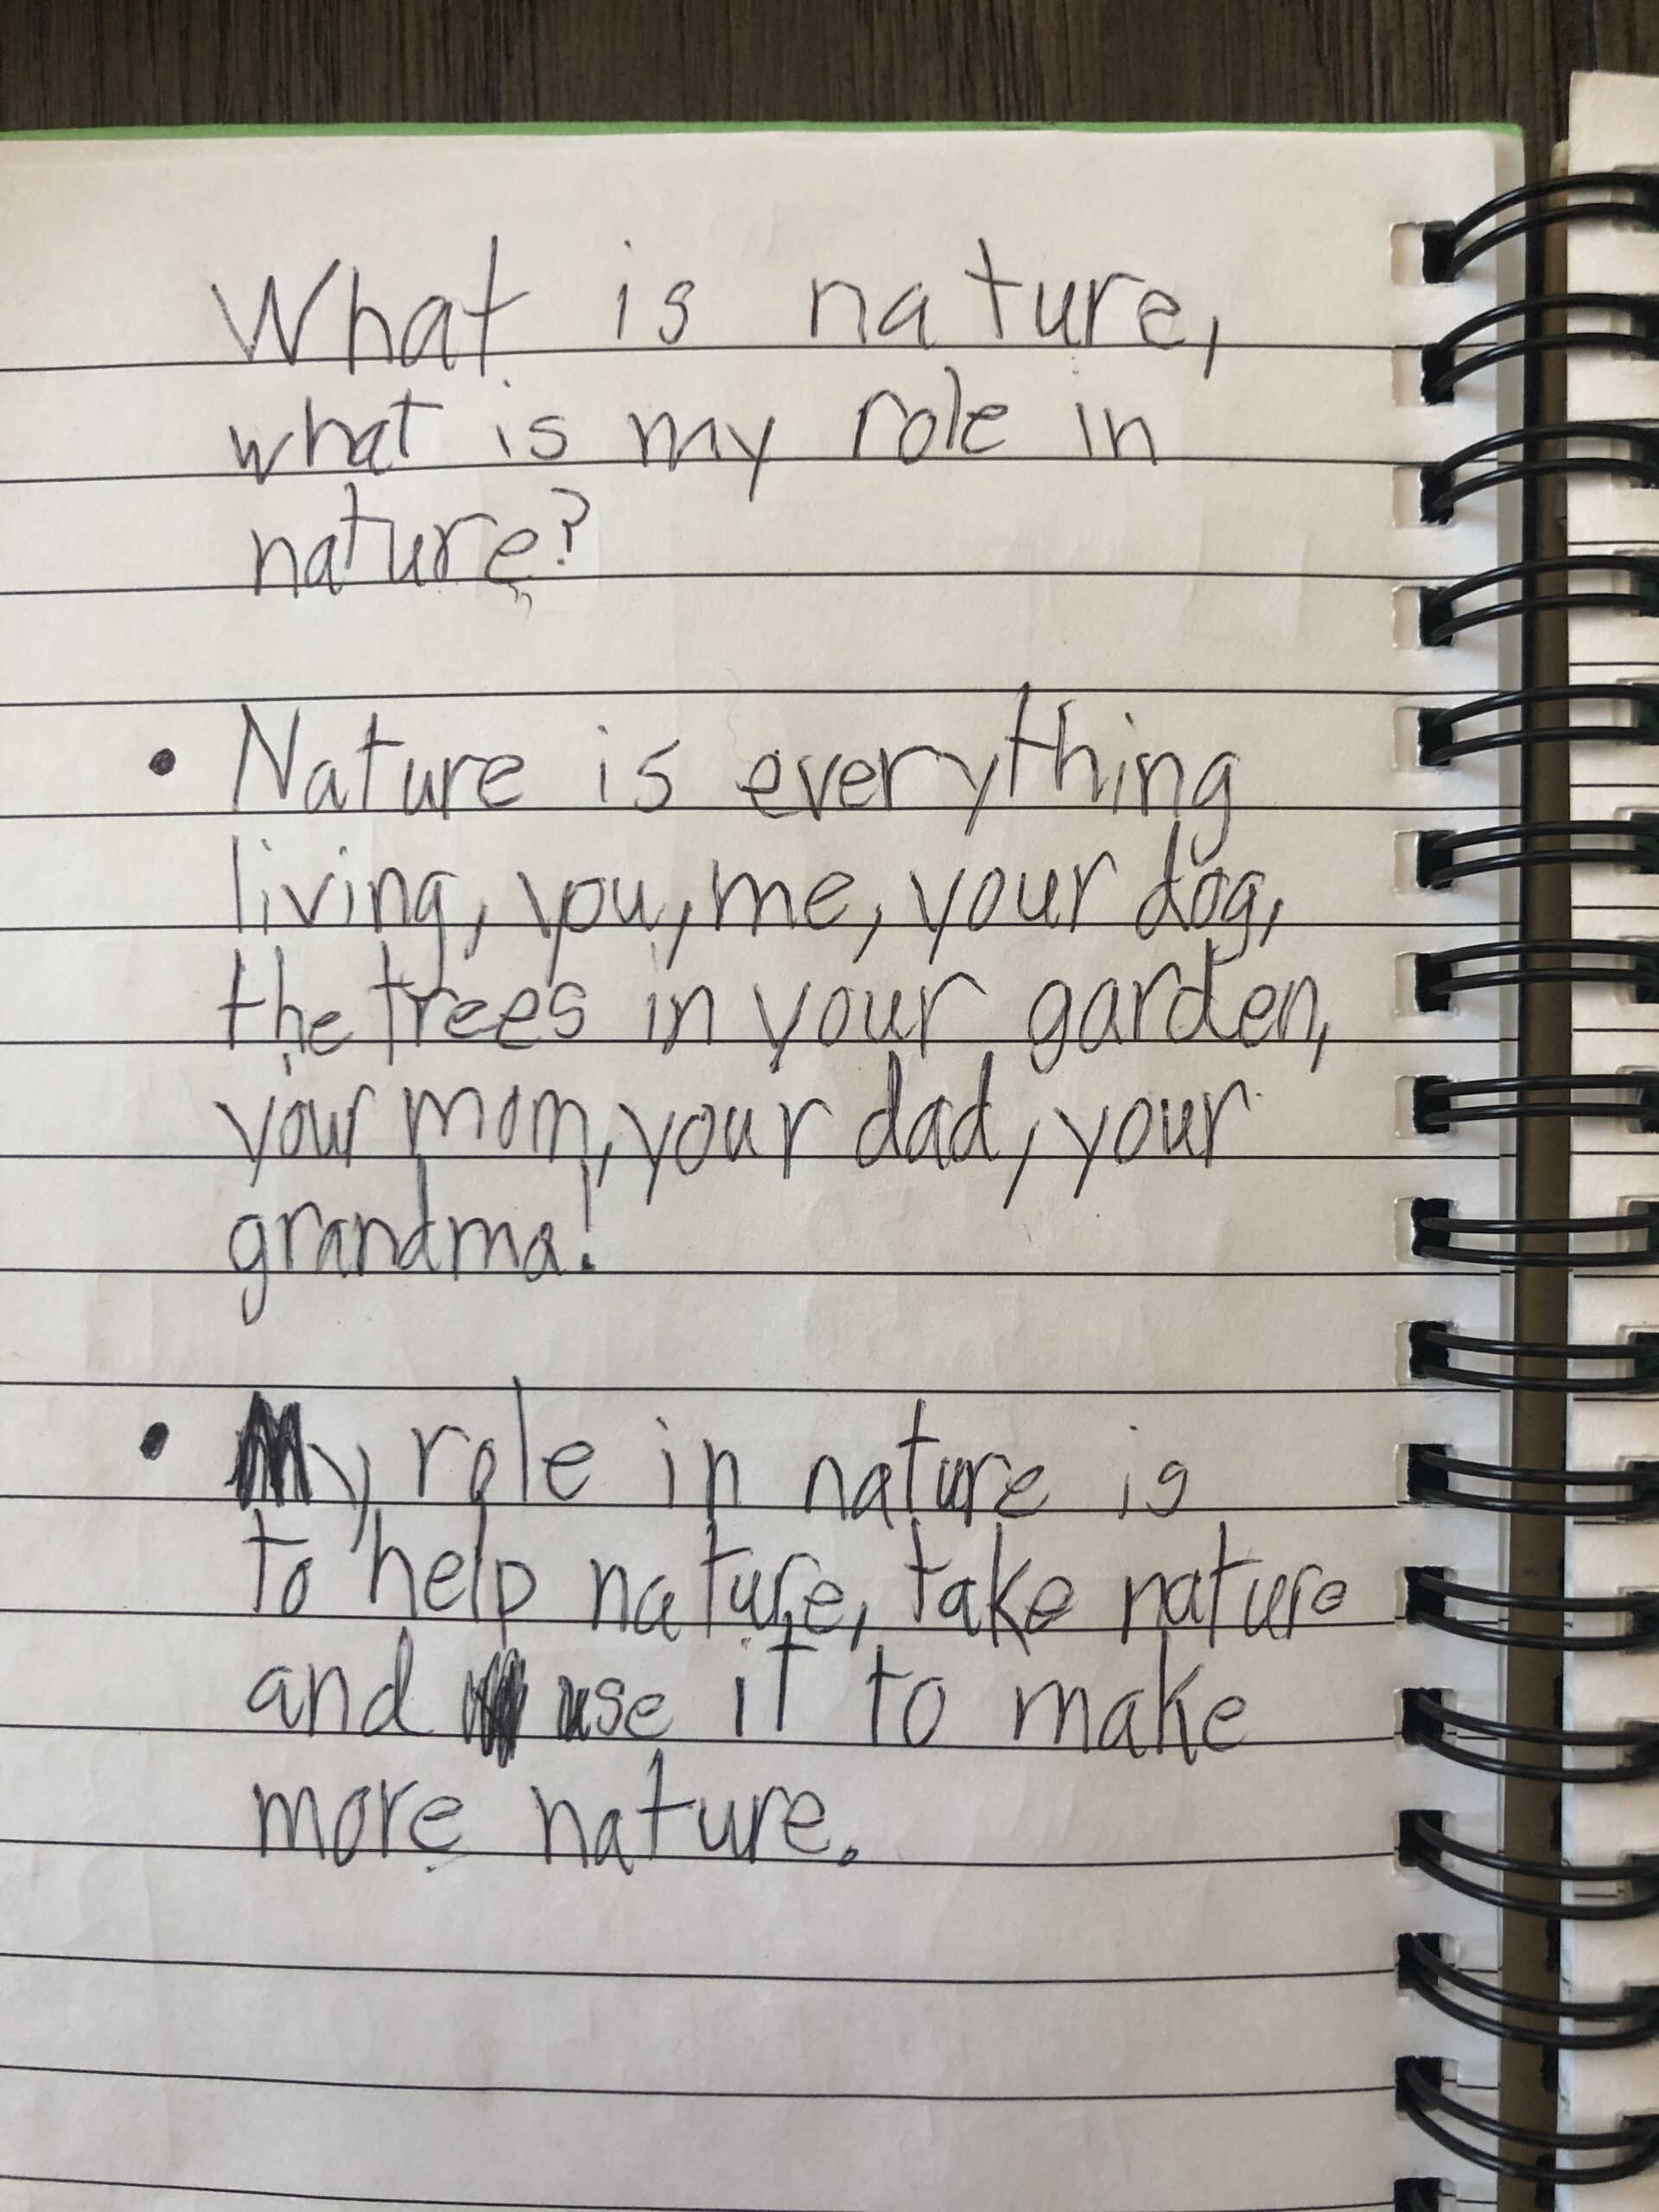 What is nature,
what is my role in
nature?
• Nature is everything
living, you, me, your dog,
the trees in your garden,
your mom, your dad, your
grandma!
• My role in nature is
to help nature, take nature
and use it to make
more nature.